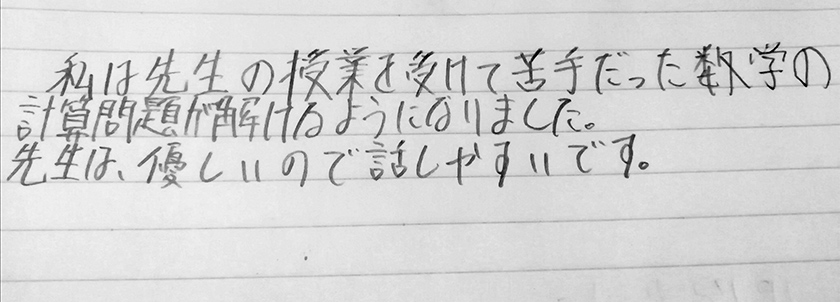 私は先生の授業を受けて苦手だった数学の
計算問題が解けるようになりました。
先生は、優しいので話しやすいです。